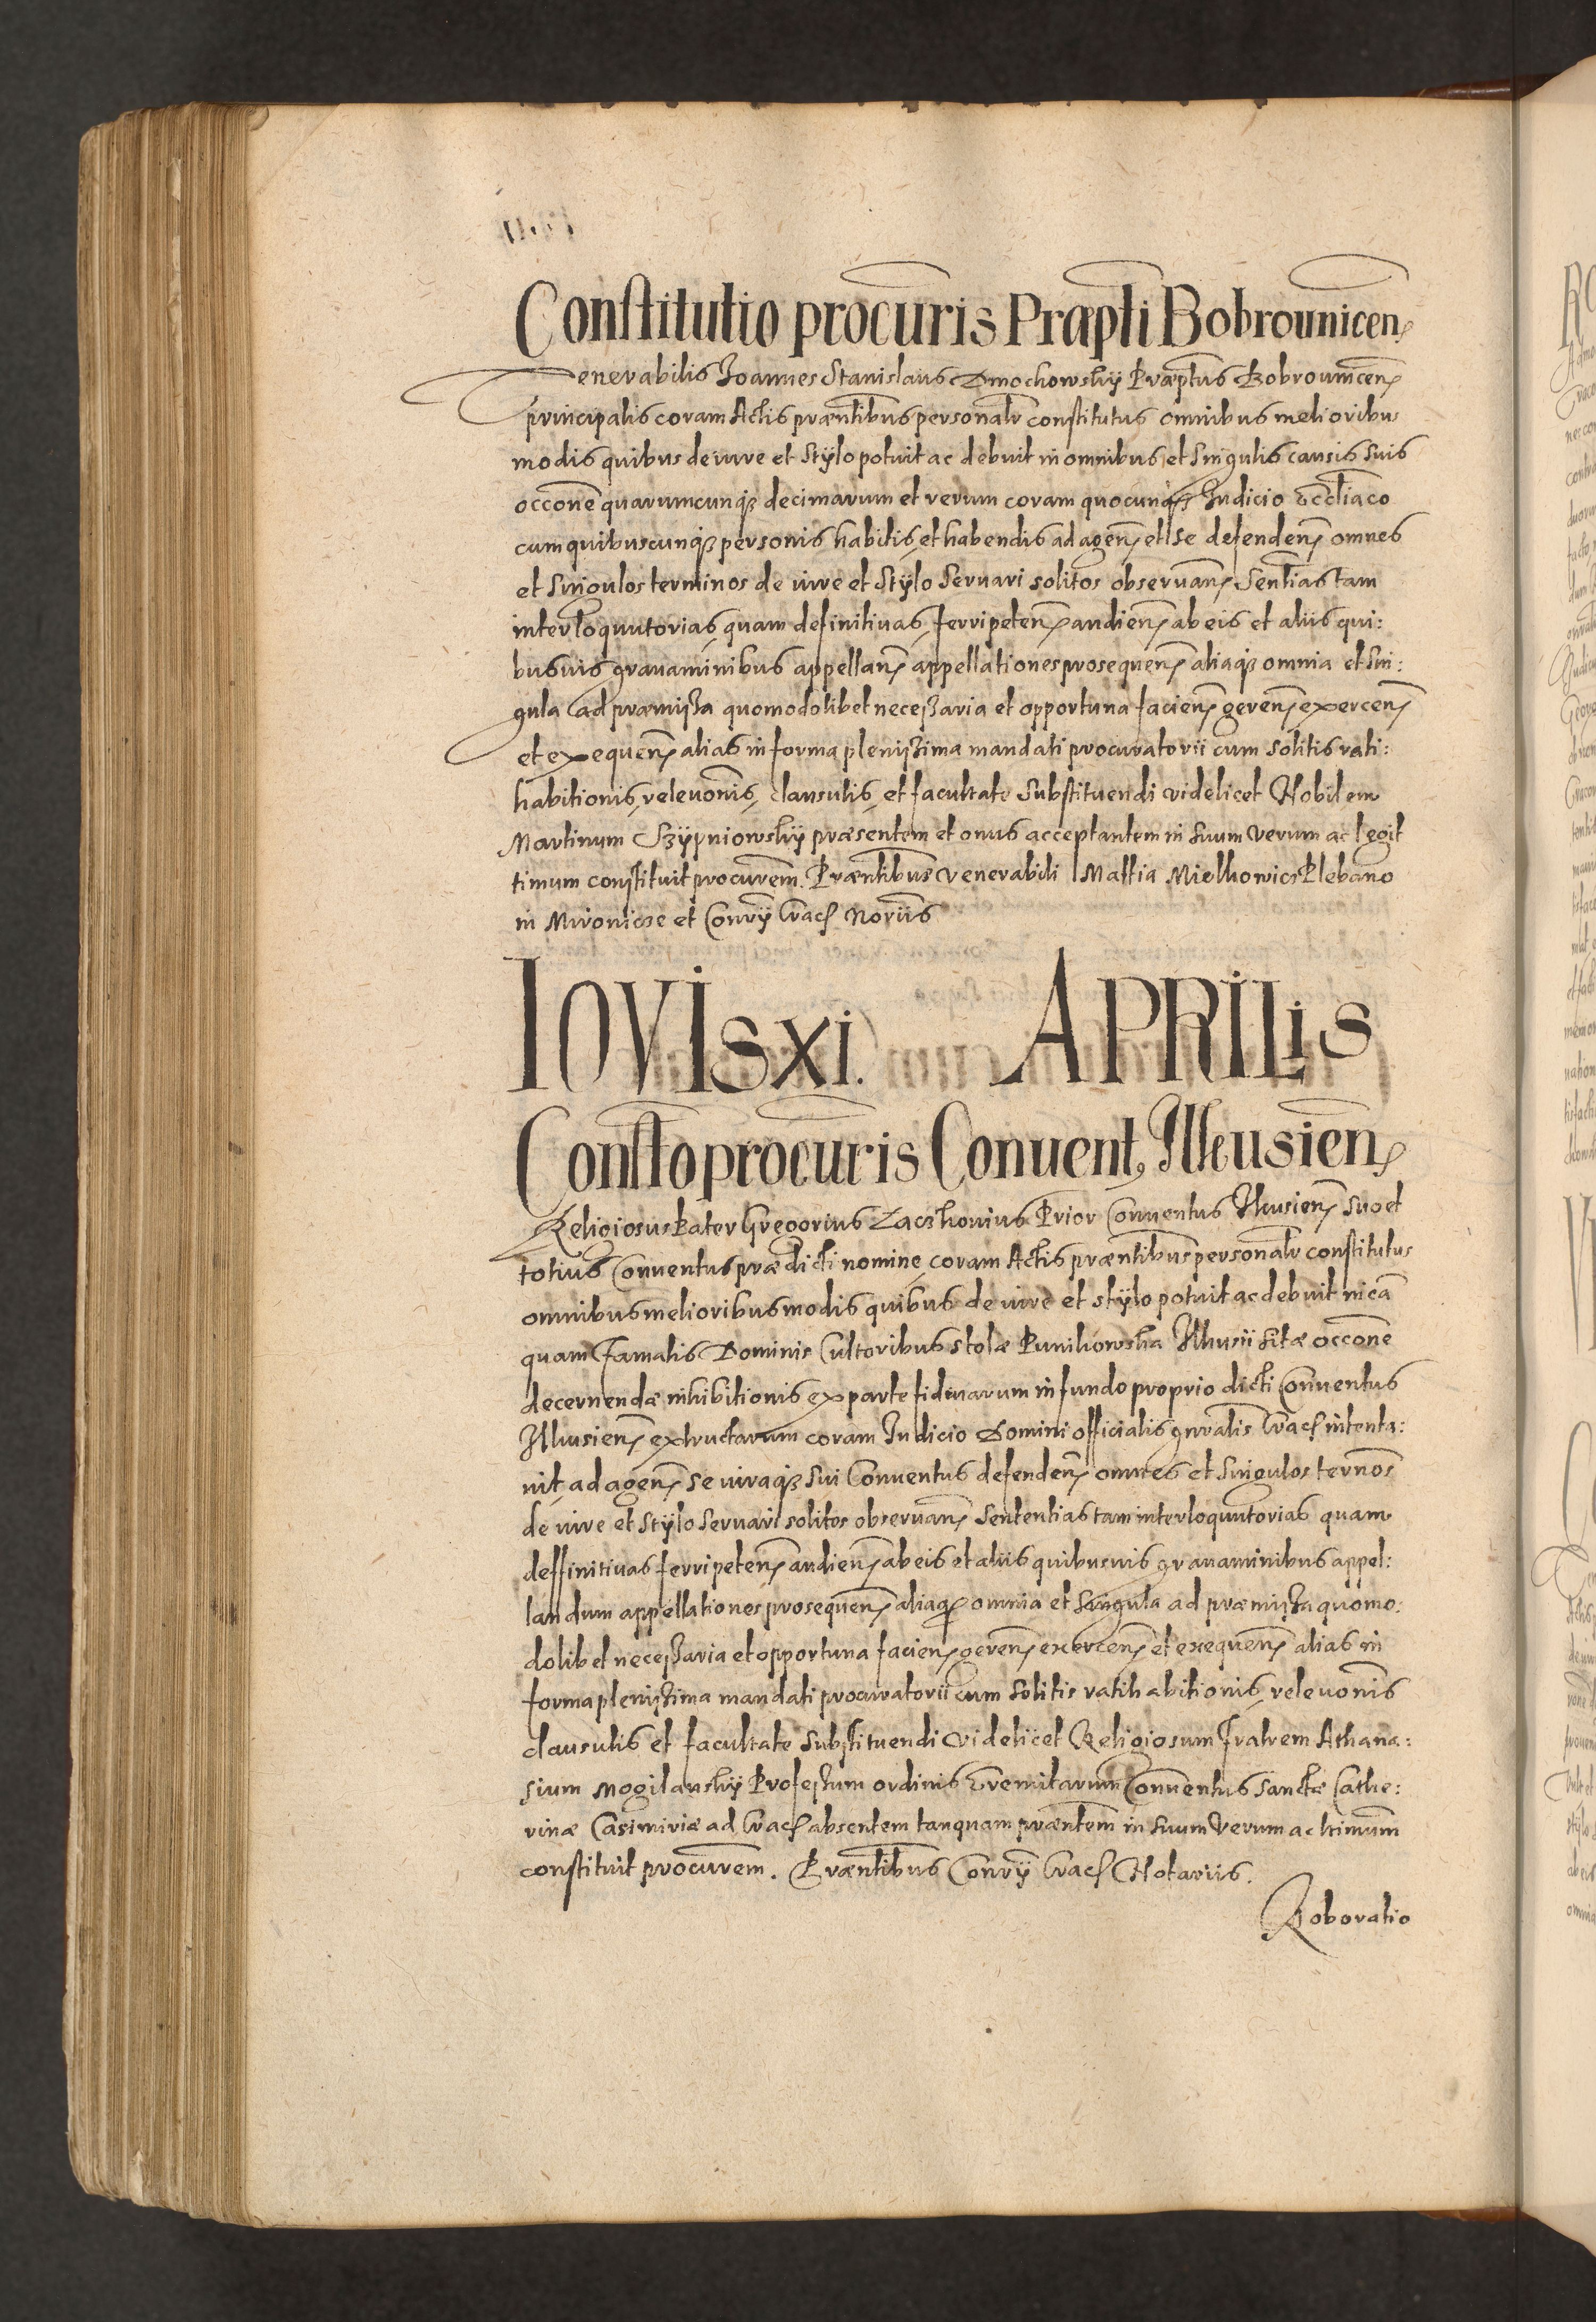 Constitutio procuris Præpti Bobrounicen
Venerabilis Joannes Stanislaus Dmochowskÿ Præptus Bobrounicen
principalis coram Actis præntibus personalr constitutus omnibus melioribus
modis quibus de iure et Stÿlo potuit ac debuit in omnibus et Singulis causis Suis
occone quarumcunqȝ decimarum et rerum coram quocunqȝ Judicio Eccliaco
cum quibuscunqȝ personis habitis et habendis ad agen et Se defenden omnes
et Singulos terminos de iure et Stÿlo Servari solitos observan Sentias tam
interloquutorias quam definitivas ferri peten audien ab eis et aliis qui:
busvis gravaminibus appellan appellationes prosequen aliaqȝ omnia et Sin:
gula ad præmissa quomodolibet necessaria et opportuna facien geren exercen
et exequen alias in forma plenissima mandati procuratorii cum Solitis rati:
habitionis, relevonis, clausulis, et facultate Substituendi videlicet Nobilem
Martinum Szÿpniowskÿ præsentem et onus acceptantem in Suum verum ac legit
timum constituit procurem. Præntibus venerabili Mattia Mielkowicz Plebano
in Mironicze et Conrÿ Crac Noriis
IOVIS XI. APRILIS
Constto procuris Convent, Ilkusien
Religiosus Pater Gregorius Zaczkovius Prior Conventus Ilkusien Suo et
totius Conventus prædicti nomine coram Actis præntibus personalr constitutus
omnibus melioribus modis quibus de iure et stÿlo potuit ac debuit in ca
quam famatis Dominis Cultoribus Stolæ Ilkusii sitæ occone
decernendæ inhibitionis ex parte ædium in fundo proprio dicti Conventus
Ilkusien extructarum coram Judicio Domini officialis gnralis Crac intenta:
vit, ad agen Se iuraqȝ Sui Conventus defenden omnes et Singulos ternos
de iure et Stÿlo Servari solitos observan Sententias tam interloquutorias quam
deffinitivas ferri peten audien ab eis et aliis quibusvis gravaminibus appel:
landum appellationes prosequen aliaqȝ omnia et Singula ad præmissa quomo:
dolibet necessaria et opportuna facien geren exercen et exequen alias in
forma plenissima mandati procuratorii cum Solitis ratihabitionis, relevonis
clausulis et facultate Substituendi videlicet Religiosum Fratrem Athana:
sium Mogilanskÿ Professum ordinis Eremitarum Conventus Sanctæ Cathe:
rinæ Casimiriæ ad Crac absentem tanquam præntem in Suum verum ac ltimum
constituit procurem. Præntibus Conrÿ Crac Notariis.
Roboratio